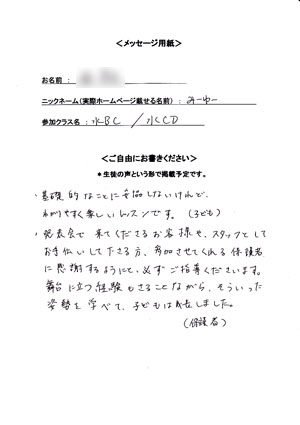 ＜メッセージ用紙＞
お名前：
ニックネーム(実際ホームページ載せる名前)：みーゆー
参加クラス名：水BC／水CD
＜ご自由にお書きください＞
＊生徒の声という形で掲載予定です。
・基礎的なことに妥協しないけれど、
わかりやすく楽しいレッスンです。(子ども)
・発表会で来てくださるお客様や、スタッフとして
お手伝いして下さる方、参加させてくれる保護者
に感謝するようにと、必ずご指導くださいます。
舞台に立つ経験もさることながら、そういった
姿勢を学べて、子どもは成長しました。
(保護者)